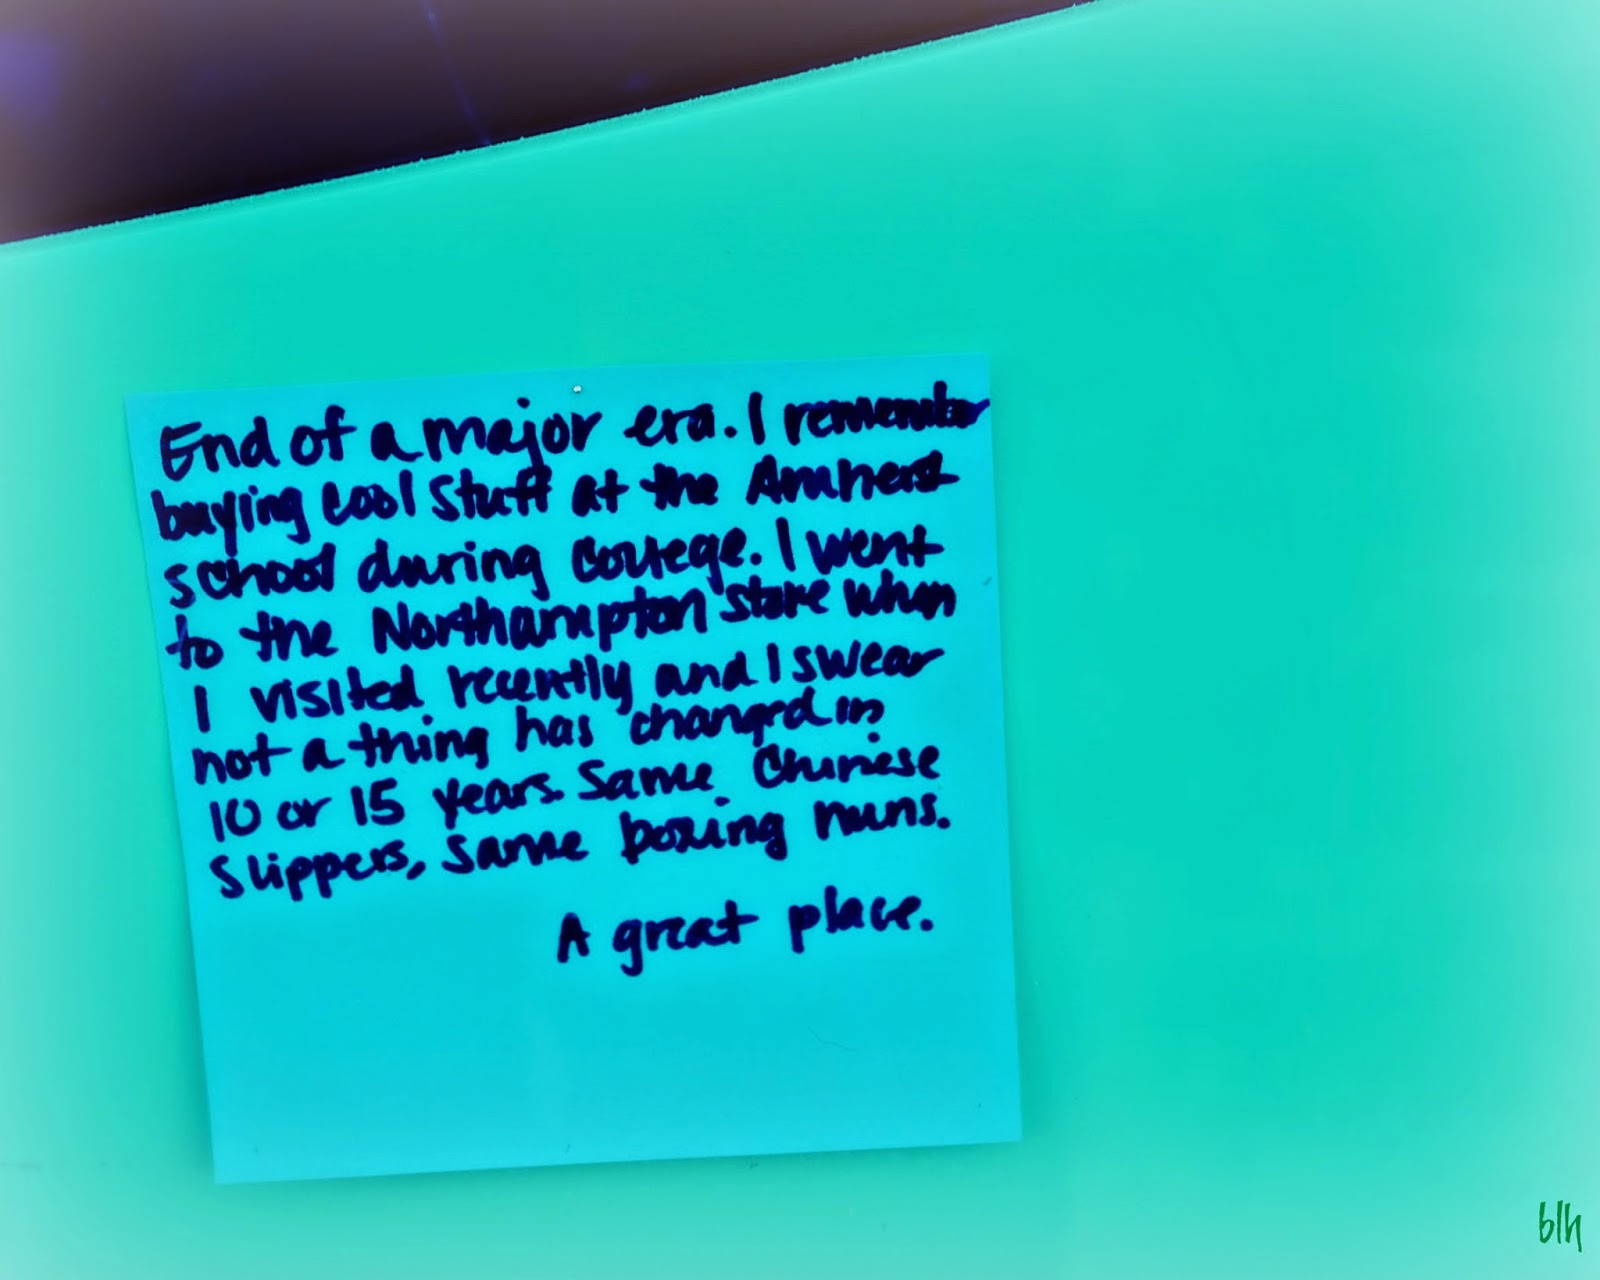 End of a major era. I remember
buying cool stuff at the Amherst
school during college. I went
to the Northampton store when
I visited recently and I swear
not a thing has changed in
10 or 15 years. Same Chinese
slippers, same boxing nuns.
A great place.
blh